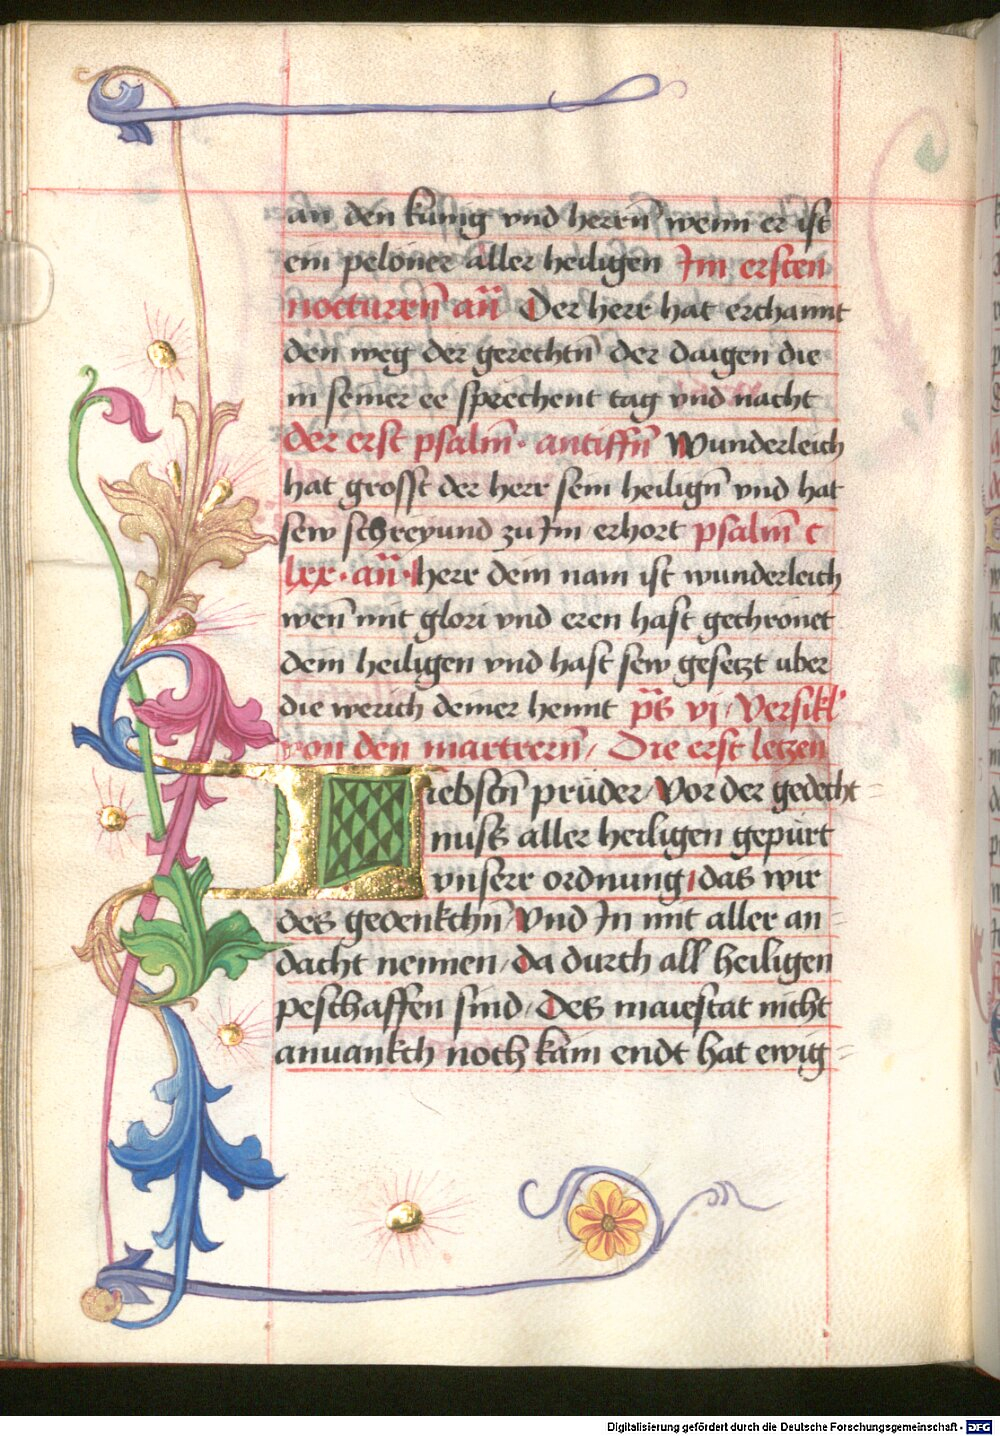 an den kunig vnd herrn̄ wenn er ist
ein peloner aller heiligen Im ersten
nocturrn̄ an̄ Der herr hat erchannt
den weg der gerechtn̄ der daigen die
in seiner ee sprechent tag vnd nacht
der erst psalm̄ · antiffn̄ Wunderleich
hat grosst der herr sein heilign̄ vnd hat
sew schreyund zu Im erhort psalm̄ c
lxx · an̄ · herr dein nam ist wunderleich
wen̄ mit glori vnd eren hast gechronet
dem heiligen vnd hast sew gesetzt vber
die werich deiner hennt ps̄ vj / Versikl'
von den martrern̄ / Die erst letzen
Liebstn̄ prüder / Vor der gedecht=
nuss aller heiligen gepürt
vnserr ordnung / das wir
des gedenkchn̄ / Vnd In mit aller an=
dacht nennen / da durch all heiligen
peschaffen sind / Des maiestat nicht
anuankch noch kain endt hat ewig=
Digitalisierung gefördert durch die Deutsche Forschungsgemeinschaft - DFG